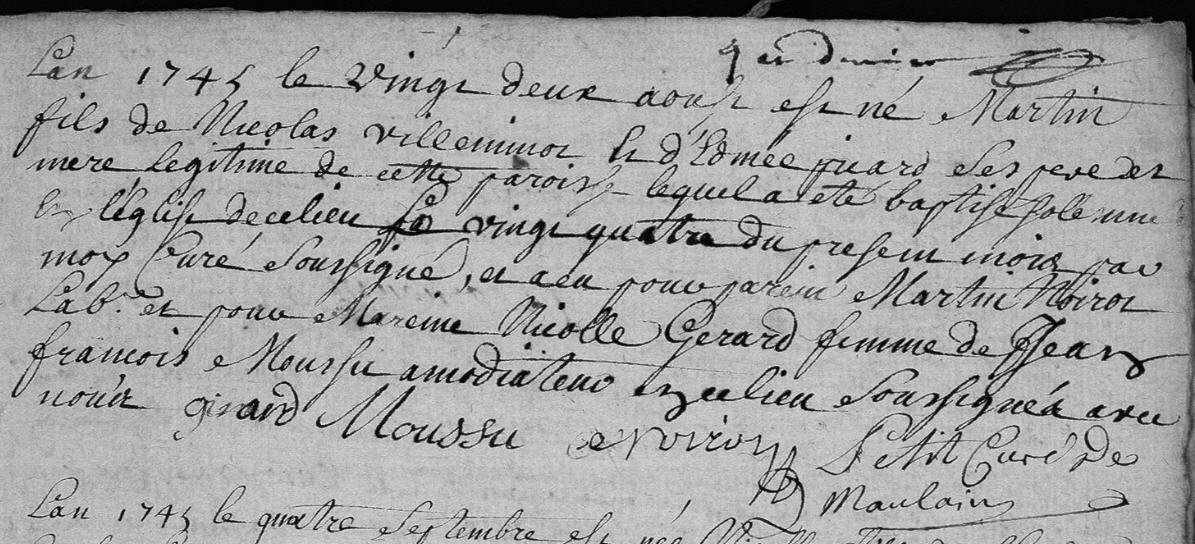 Lan 1745 le vingt deux aoust est né Martin
fils de Nicolas villeminot Et d'Edmée picard ses pere et
mere legitime de cette paroisse lequel a eté baptisé solemne
En l'églisse de ce lieu Le vingt quatre du present mois par
moy Curé soussigné, et a eu pour parein Martin Noirot
Labr. et pour Mareine Nicolle Gerard femme de Jean
francois Moussu amodiateur en ce lieu soussignéz avec
nous
girard Moussu Noirot Petit Curé de
Maulain
Lan 1745 le quatre Septembre est née